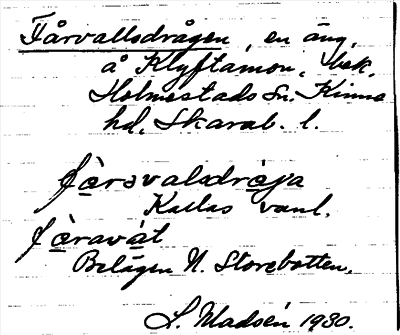 Fårvallsdrågen, en äng,
å Klyftamon, bek.
Holmestads Sn. Kinne
hd. Skarab. l.
fàrsvalsdràga
Kallas vanl.
fàravàt
Belägen N. Storebotten.
S. Madsén 1930.